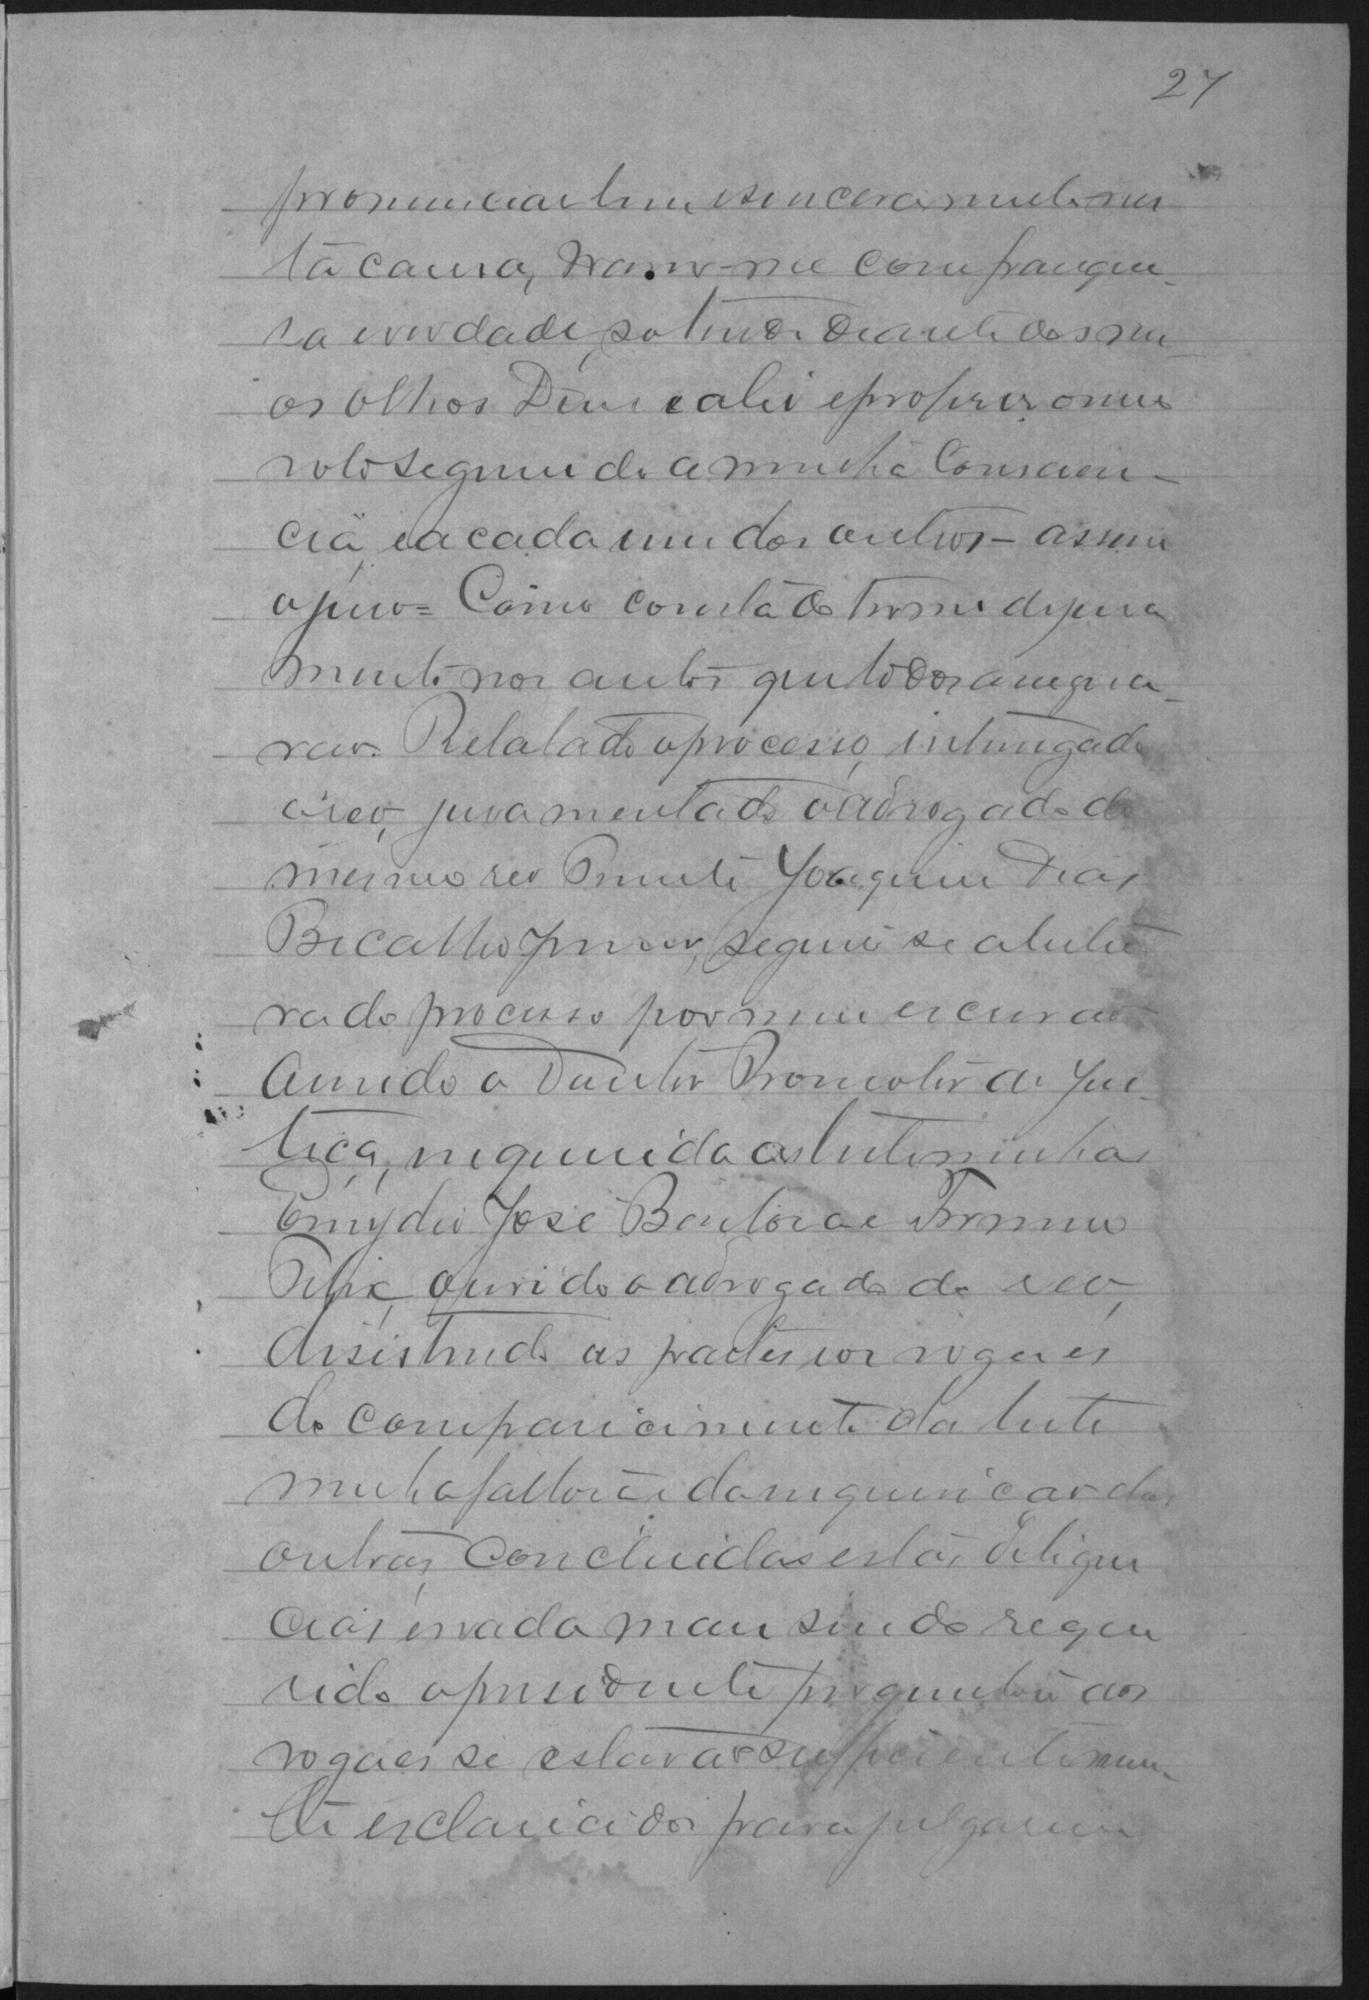 27
pronunciar bem e sinceramente nes
ta causa, haver-me com franque
sa e verdade, só tendo diante dos me
os olhos Deus e a lei e proferir o meu
voto segundo a minha Conscien-
cia, e a cada um dos outros - assim
o juro = Como consta do termo de jura
mento nos autos que todos assigna-
rão. Relatado o processo, interrogado
o reo, juramentado o advogado do
mesmo reo Tenente Joaquim Dias
Bicalho Junior, seguio se a leitu
ra do processo por mim escrivão
ouvido o Doutor Promotor de Jus-
tiça, inquirida as testeminhas
Emydio José Barbosa e Firmino
Felix, ouvido o advogado do reo,
disistindo as partes e os vogaes
do comparicimento da teste
minha faltosa e da inquirição das
outras, Concluidas estas deligen
cias e nada mais sendo reque
rido o presidente perguntou aos
vogaes se estavão sufficientemen-
te esclarecidos para julgarem